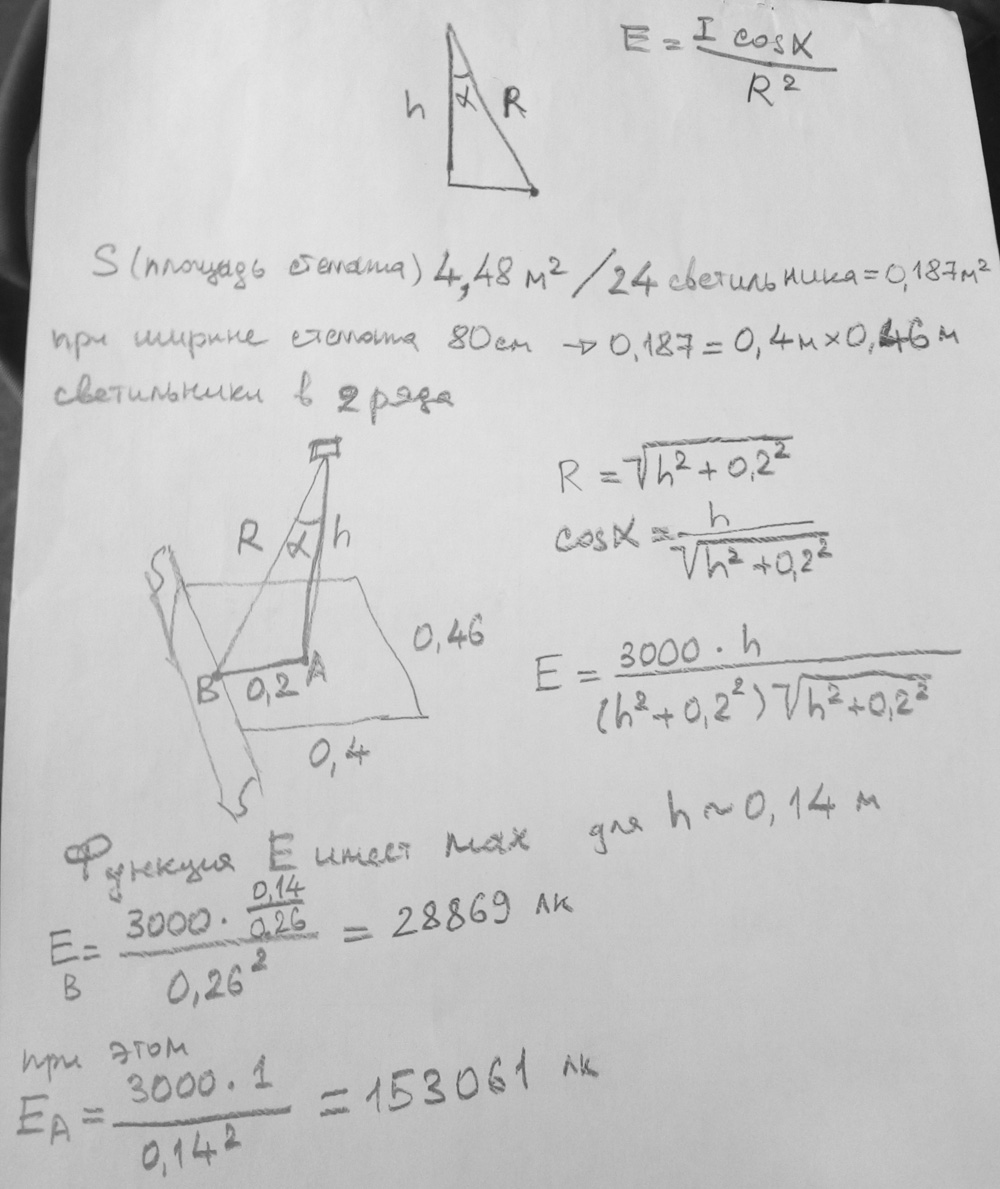 E = I cosα / R²
h α R
S (площадь стеллажа) 4,48 м² / 24 светильника = 0,187 м²
при ширине стеллажа 80 см → 0,187 = 0,4 м × 0,46 м
светильники в 2 ряда
R = √(h² + 0,2²)
cosα = h / √(h² + 0,2²)
R α h
S
0,46
B 0,2 A
0,4
S
E = 3000 · h / (h² + 0,2²) √(h² + 0,2²)
Функция E имеет max для h ~ 0,14 м
E B = 3000 · 0,14/0,26 / 0,26² = 28869 лк
при этом
E A = 3000 · 1 / 0,14² = 153061 лк